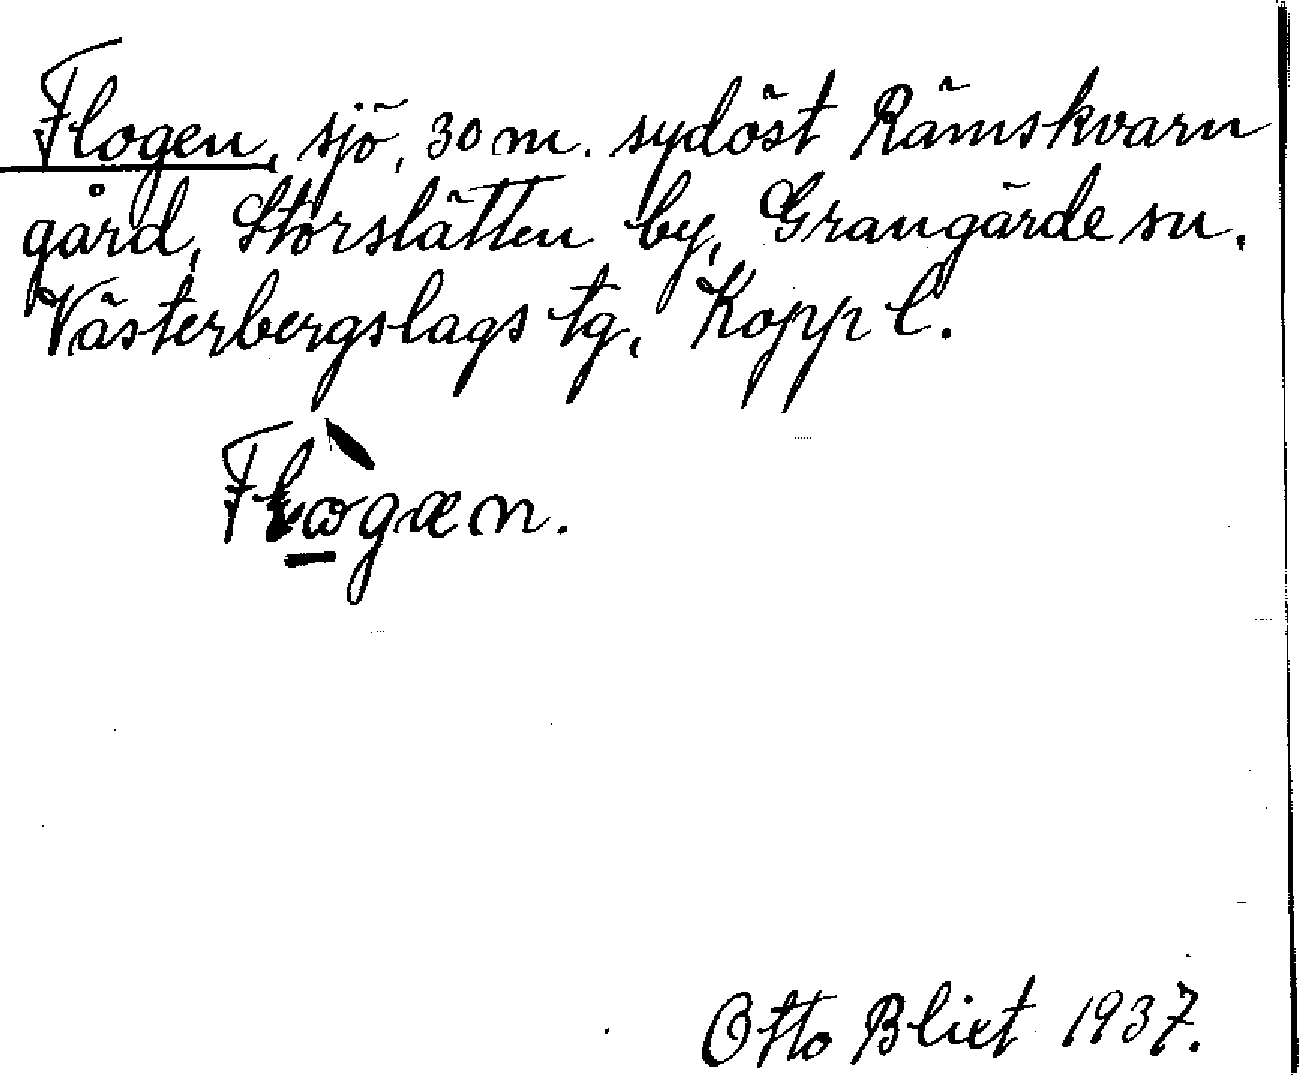 Flogen, sjö, 30 m. sydöst Rämskvarn
gård, Storslätten by, Grangärde sn.
Västerbergslags tg, Kopp l.
Flògæn.
Otto Blixt 1937.